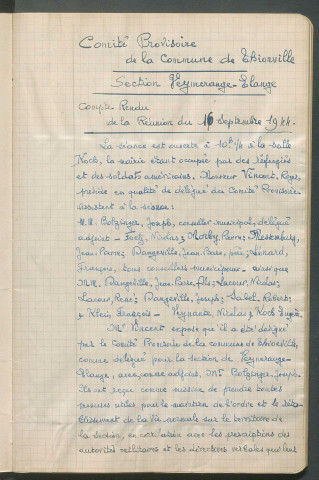 Comité Provisoire
de la Commune de Thionville
Section Veymerange-Elange
Compte-Rendu
de la Réunion du 16 Septembre 1944.
La séance est ouverte à 10h 1/4 à la salle
Koch, la mairie étant occupée par des réfugiés
et des soldats américains. Monsieur Vincent, Roger,
préside en qualité de délégué du Comité Provisoire.
Assistent à la séance:
M.M. Botzinger, Joseph, conseiller municipal, délégué
adjoint - Nicolas; Pierre;
Jean-Pierre; Dangeville, Jean-Pierre, père; Léonard,
François, tous conseillers municipaux - ainsi que
M.M. Dangeville, Jean-Pierre, fils; Lacour, Nicolas;
Lacour, René; Dangeville, Joseph; Salet, Robert;
Klein, François - Nicolas & Koch Eugène.
Mr Vincent expose qu'il a été désigné
par le Comité Provisoire de la Commune de Thionville,
comme délégué pour la section de Veymerange-
Elange, avec comme adjoint, Mr Botzinger, Joseph.
Ils ont reçu comme mission de prendre toutes
mesures utiles pour le maintien de l'ordre et le réta-
blissement de la vie normale sur le territoire de
la section, en corrélation avec les prescriptions des
autorités militaires et les directives